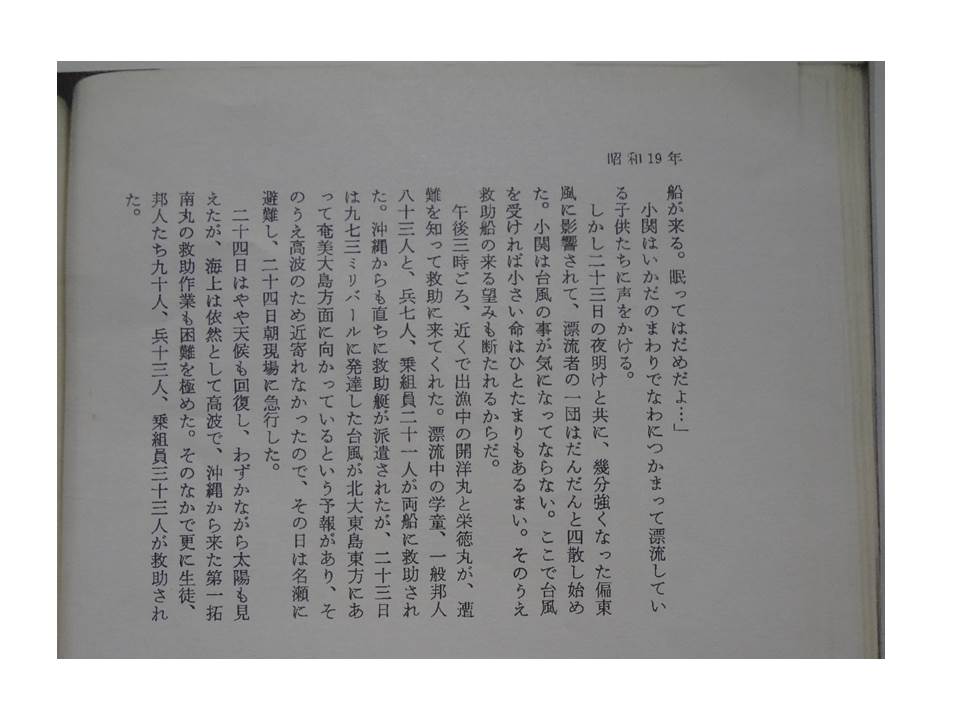 昭和19年
船が来る。眠ってはだめだよ…」
小関はいかだのまわりでなわにつかまって漂流してい
る子供たちに声をかける。
しかし二十三日の夜明けと共に、幾分強くなった偏東
風に影響されて、漂流者の一団はだんだんと四散し始め
た。小関は台風の事が気になってならない。ここで台風
を受ければ小さい命はひとたまりもあるまい。そのうえ
救助船の来る望みも断たれるからだ。
午後三時ごろ、近くで出漁中の開洋丸と栄徳丸が、遭
難を知って救助に来てくれた。漂流中の学童、一般邦人
八十三人と、兵七人、乗組員二十一人が両船に救助され
た。沖縄からも直ちに救助艇が派遣されたが、二十三日
は九七三ミリバールに発達した台風が北大東島東方にあ
って奄美大島方面に向かっているという予報があり、そ
のうえ高波のため近寄れなかったので、その日は名瀬に
避難し、二十四日朝現場に急行した。
二十四日はやや天候も回復し、わずかながら太陽も見
えたが、海上は依然として高波で、沖縄から来た第一拓
南丸の救助作業も困難を極めた。そのなかで更に生徒、
邦人たち九十人、兵十三人、乗組員三十三人が救助され
た。